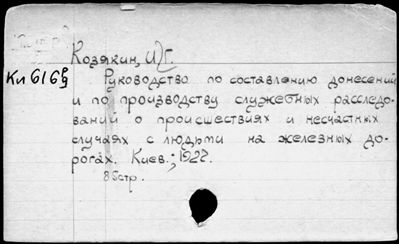 Козякин, И.Г.
Ки616
Руководство по составлению донесений
и по производству служебных расследо-
ваний о происшествиях и несчастных
случаях с людьми на железных до-
рогах. Киев., 1922.
85стр.